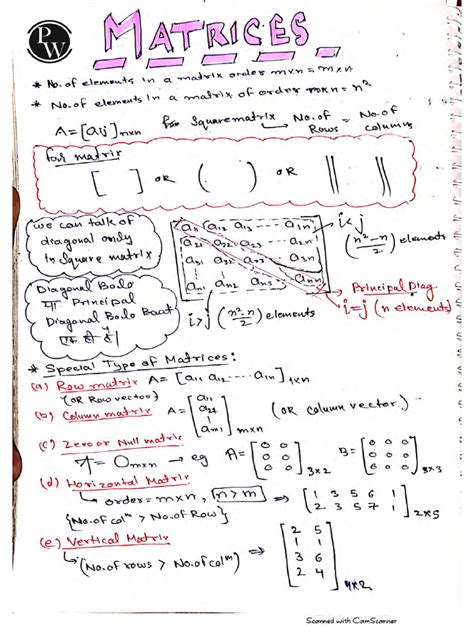 PW
MATRICES
* No. of elements in a matrix order m×n = m×n
* No. of elements in a matrix of order n×n = n²
A = [aij]n×n for square matrix ↳ No. of Rows = No. of columns
for matrix
[ ] OR ( ) OR || ||
we can talk of
diagonal only
in square matrix
a11 a12 a13 ---- a1n
a21 a22 a23 ---- a2n
a31 a32 a33 ---- a3n
an1 an2 an3 ---- ann
i<j
(n²-n/2) elements
Diagonal Bolo
या Principal
Diagonal Bolo Baat
एक ही है
i>j (n²-n/2) elements
Principal Diag.
i=j (n elements)
* Special Type of Matrices:
(a) Row matrix A = [a11 a12 ---- a1n]1×n
(OR Row vector)
(b) Column matrix A = [a11 a21 ⋮ am1] m×n (OR column vector)
(c) Zero or Null matrix
A = Om×n → eg A = [0 0 0 0 0 0] 3×2 B = [0 0 0 0 0 0 0 0 0] 3×3
(d) Horizontal Matrix
↳ order = m×n, n>m ⇒ [1 3 5 6 1
2 3 5 7 1] 2×5
{No. of colm > No. of Row}
(e) Vertical Matrix
↳ (No. of rows > No. of colm) ⇒ [2 5
1 1
3 6
2 4] 4×2
Scanned with CamScanner